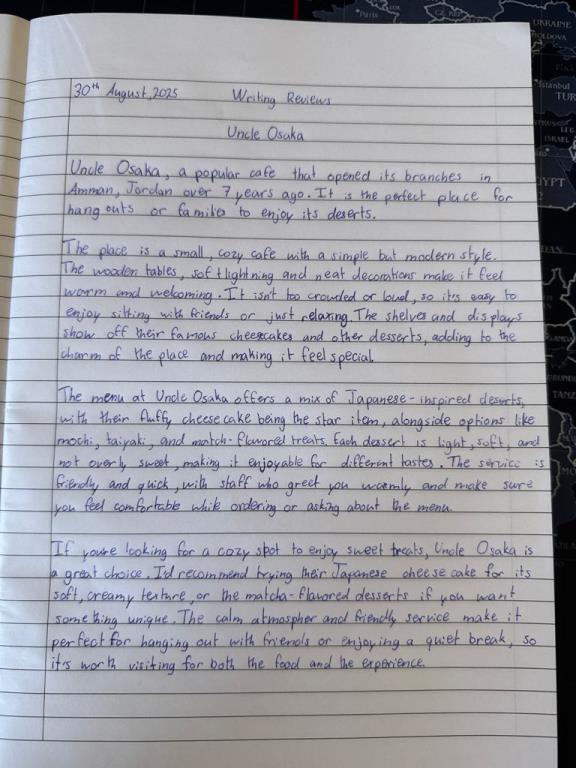 30th August, 2025 Writing Reviews
Uncle Osaka
Uncle Osaka, a popular cafe that opened its branches in
Amman, Jordan over 7 years ago. It is the perfect place for
hang outs or familes to enjoy its deserts.
The place is a small, cozy cafe with a simple but modern style.
The wooden tables, soft lightning and neat decorations make it feel
warm and welcoming. It isn't too crowded or loud, so it's easy to
enjoy sitting with friends or just relaxing. The shelves and displays
show off their famous cheesecakes and other desserts, adding to the
charm of the place and making it feel special.
The menu at Uncle Osaka offers a mix of Japanese-inspired deserts,
with their fluffy cheese cake being the star item, alongside options like
mochi, taiyaki, and match-flavored treats. Each dessert is light, soft, and
not overly sweet, making it enjoyable for different tastes. The service is
friendly and quick, with staff who greet you warmly and make sure
you feel comfortable while ordering or asking about the menu.
If youre looking for a cozy spot to enjoy sweet treats, Uncle Osaka is
a great choice. I'd recommend trying their Japanese cheese cake for its
soft, creamy texture, or the matcha-flavored desserts if you want
something unique. The calm atmospher and friendly service make it
perfect for hanging out with friends or enjoying a quiet break, so
it's worth visiting for both the food and the experience.
Paris
UKRAINE
MOLDOVA
Istanbul
TUR
ISRAEL
YPT
DAN
TANZ